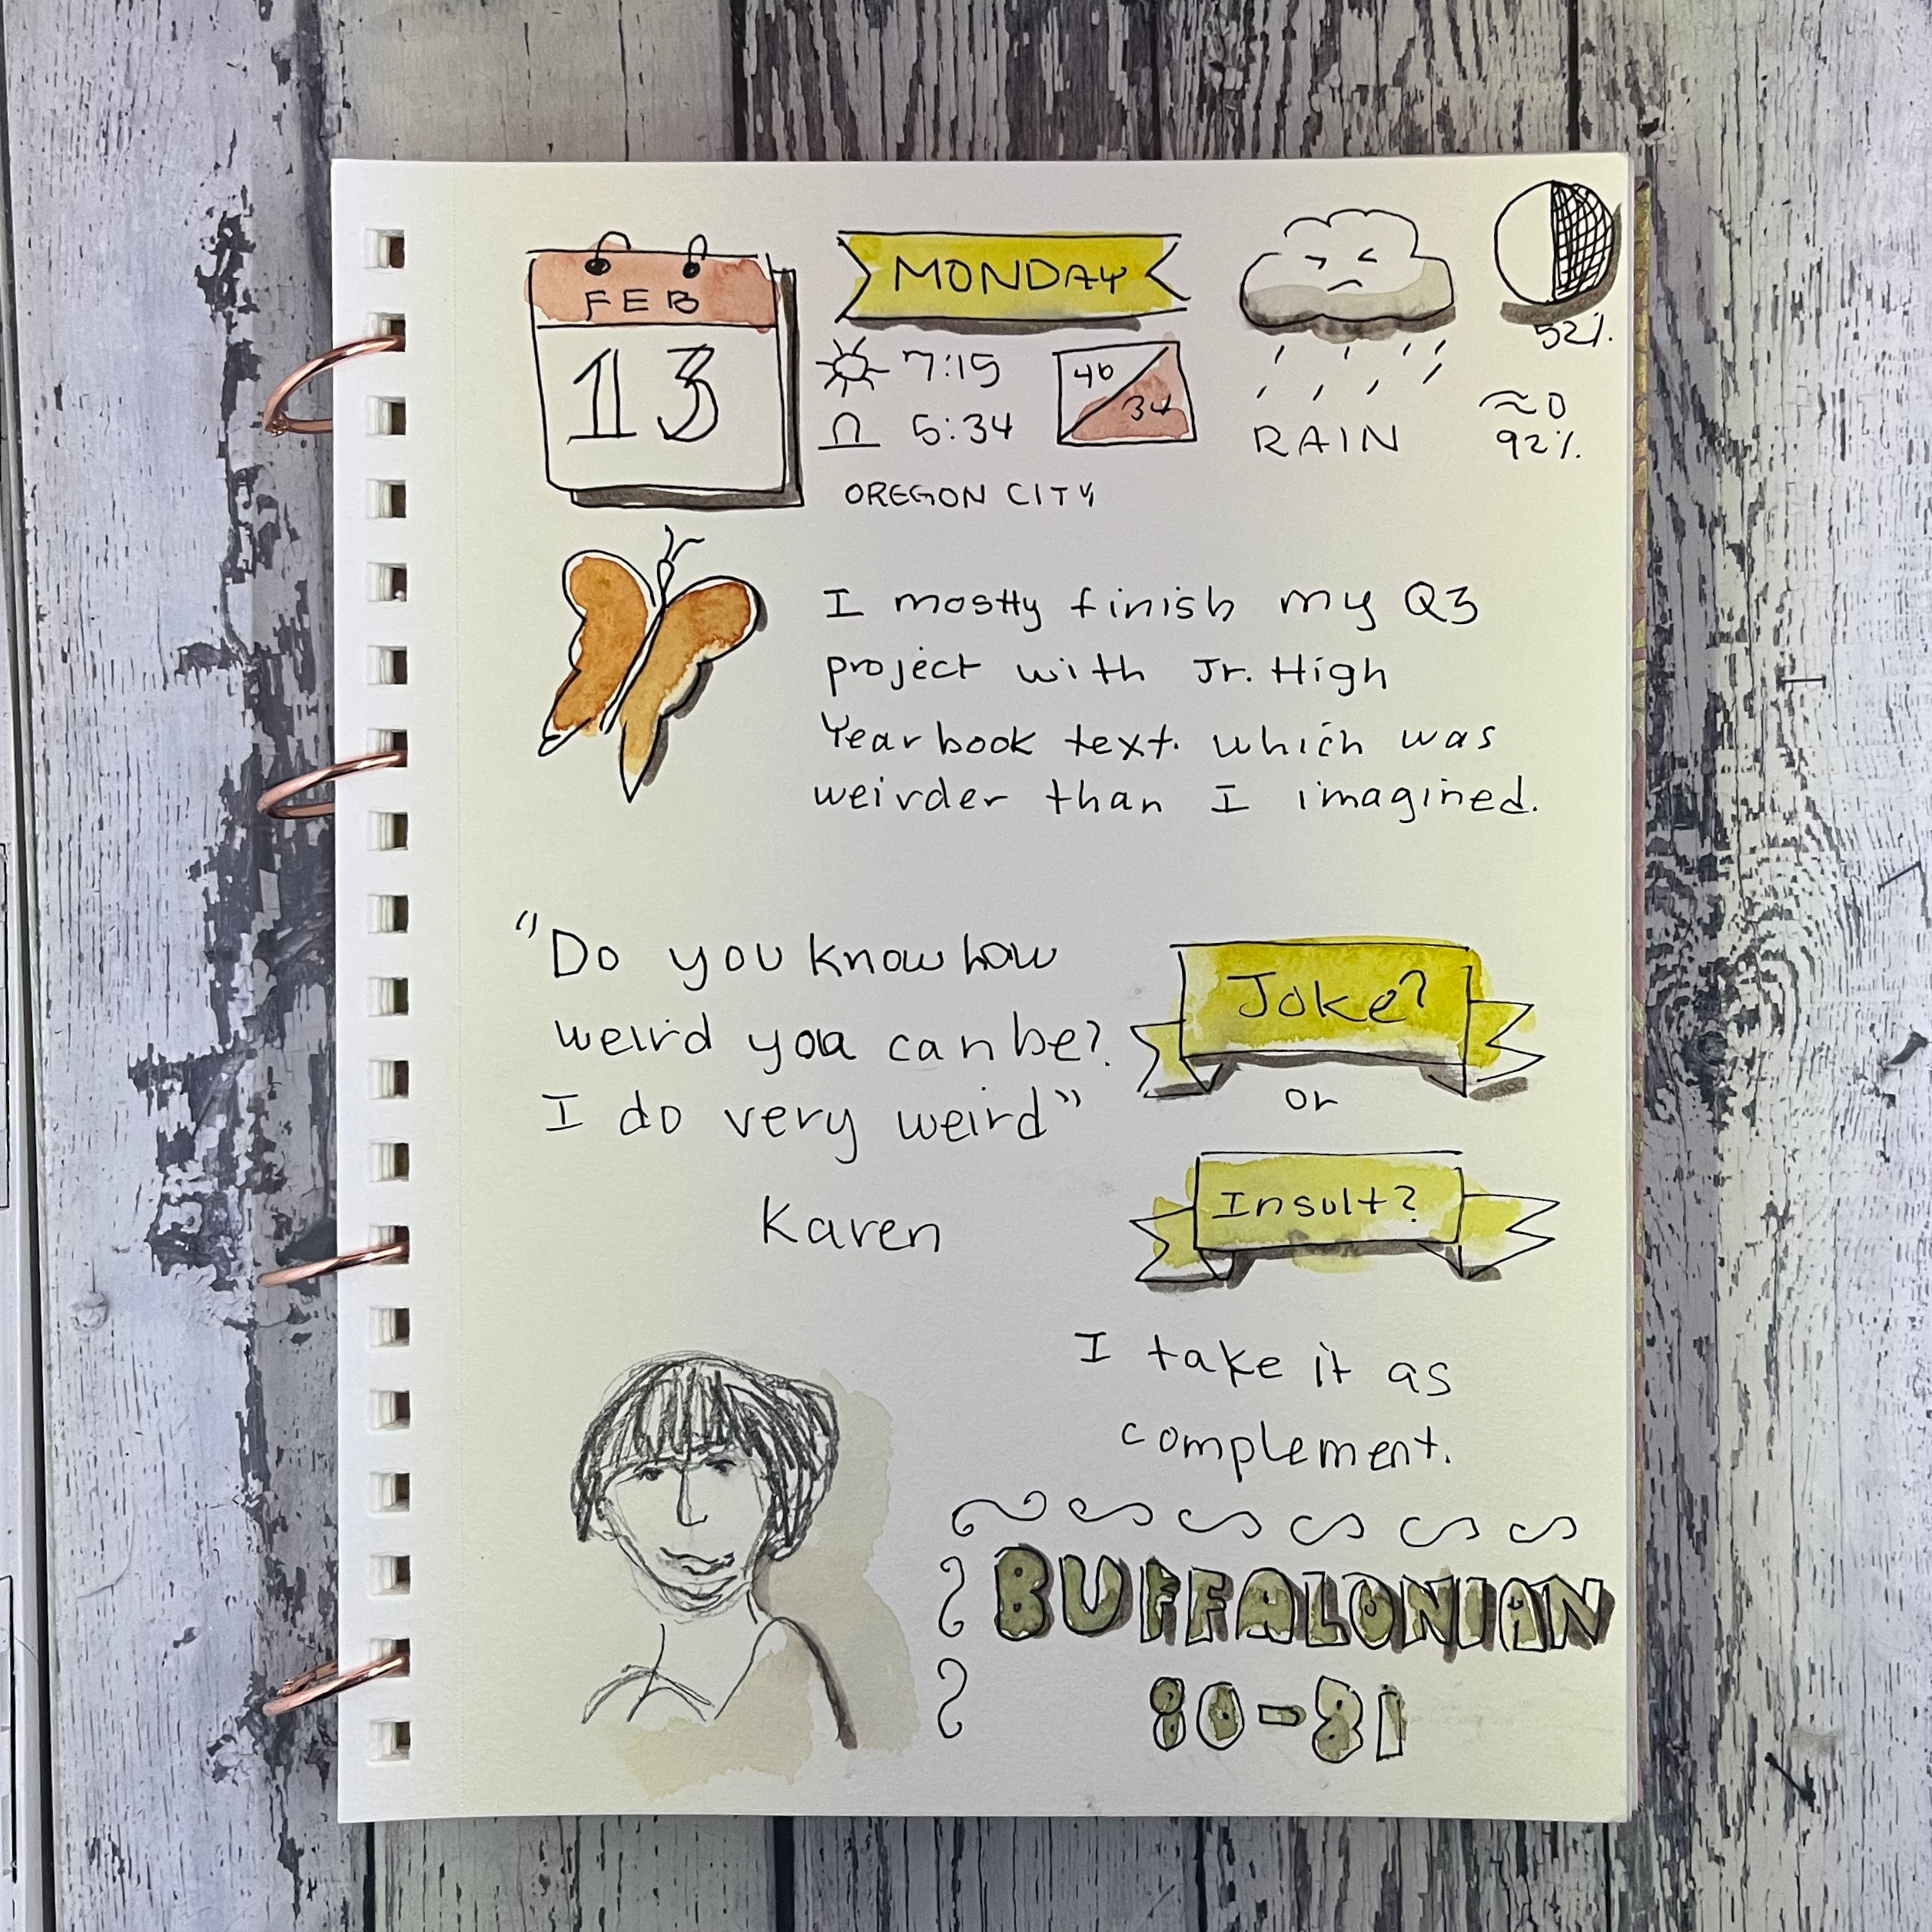 FEB
13
MONDAY
7:15
5:34
46
34
OREGON CITY
RAIN
52%
≈0
92%
I mostly finish my Q3
project with Jr. High
Yearbook text. which was
weirder than I imagined.
"Do you know how
weird you can be?
I do very weird"
Karen
Joke?
or
Insult?
I take it as
complement.
BUFFALONIAN
80-81